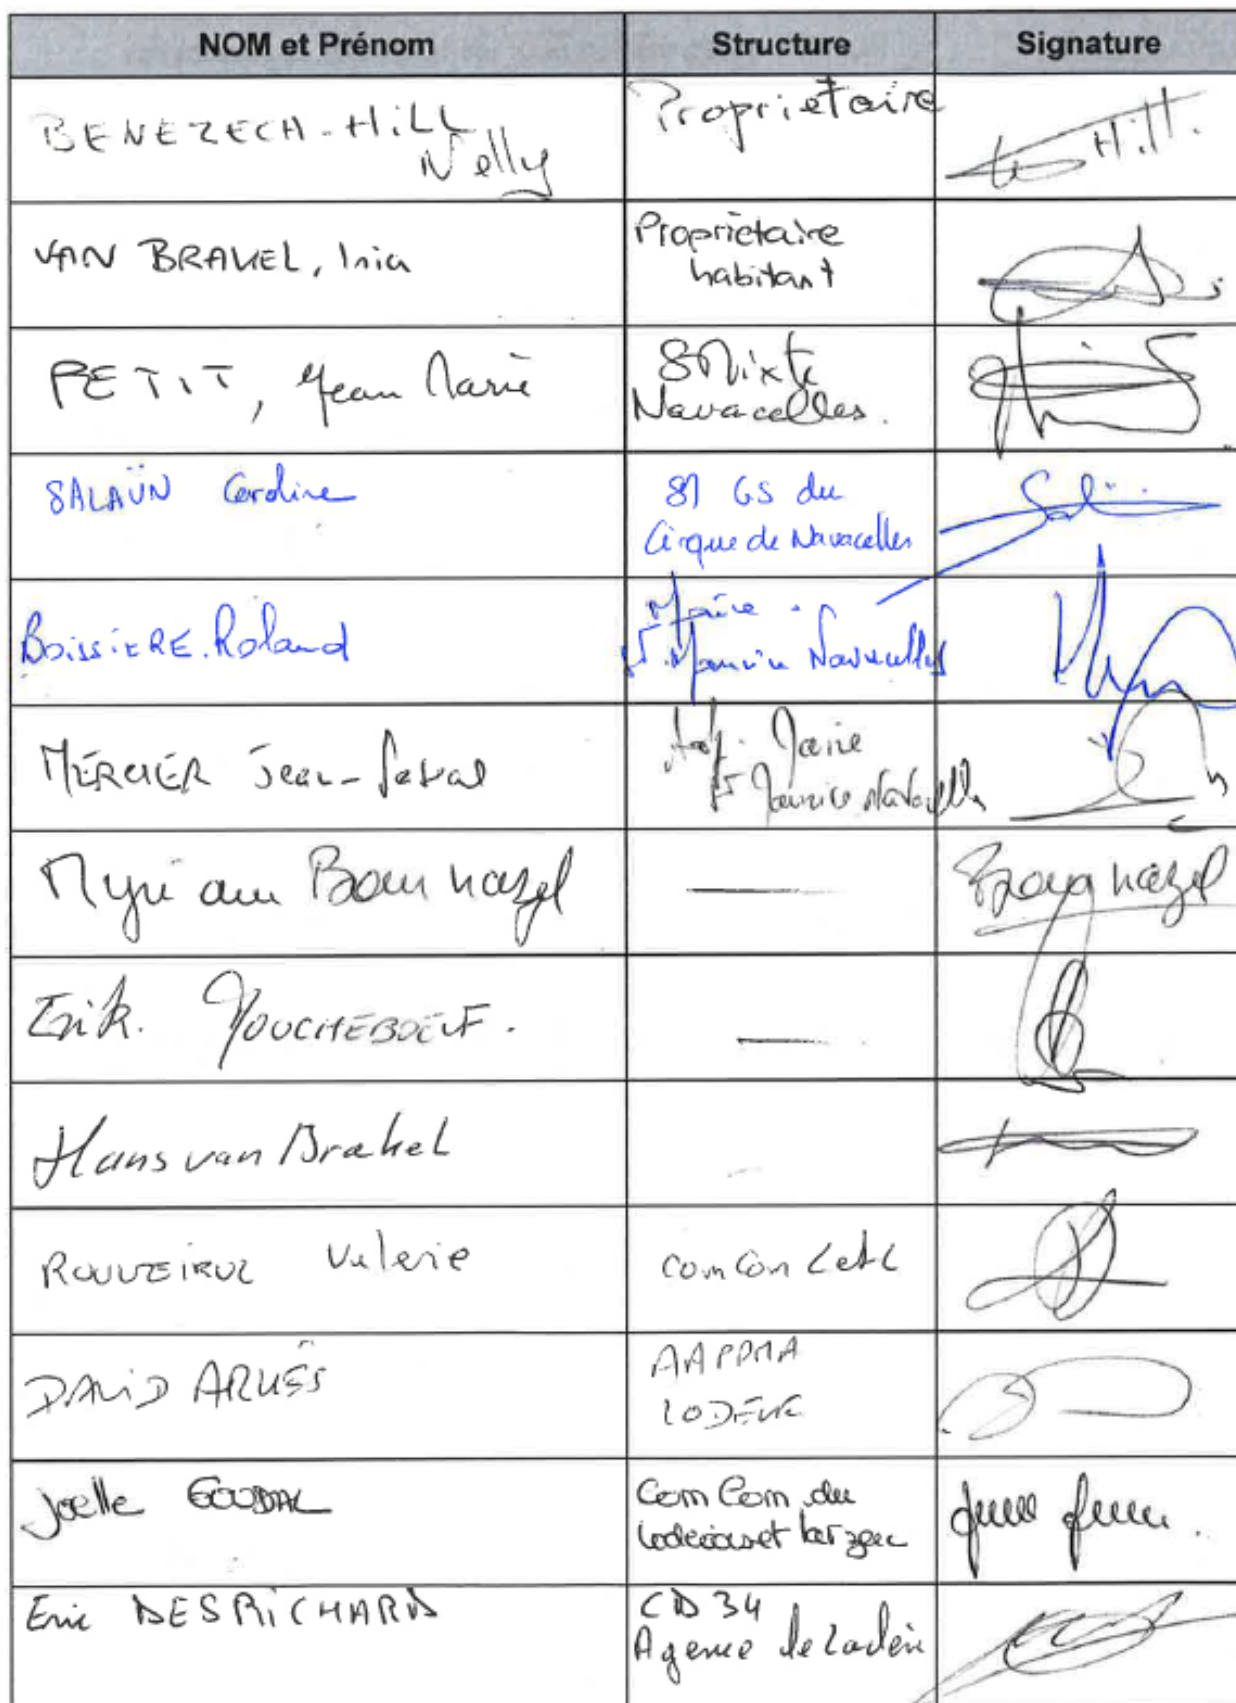 NOM et Prénom Structure Signature
BENEZECH-HiLL Propriétaire
Nelly Hill.
VAN BRAKEL, Inia Propriétaire
habitant
PETIT, Jean Marie SMixte
Navacelles.
SALAÜN Caroline SM GS du
Cirque de Navacelles
BoissiERE.Roland Maire
St Maurice Navacelles
MERCIER Jean-Pascal Adj. Maire
St Maurice Navacelles
Myriam Bournazel — Bournazel
Erik. POUCHEBOEUF. —
Hans van Brakel
ROUVEIROL Valerie comcom L et L
DAViD ARLÈS AAPPMA
LODÈVE
Joelle GOUDAL Com Com du
Lodévois et Larzac
Eric DESPRICHARD CD 34
Agence de Lodève